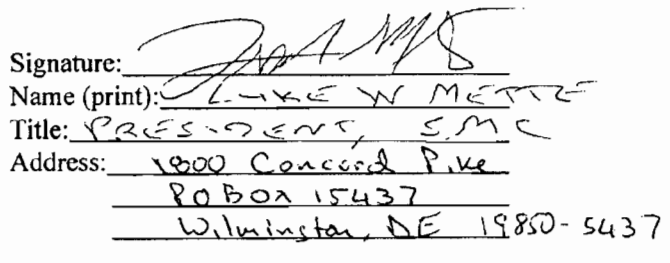 Signature:
Name (print): LUKE W METTE
Title: PRESIDENT, SMC
Address: 1800 Concord Pike
PO BOX 15437
Wilmington, DE 19850-5437